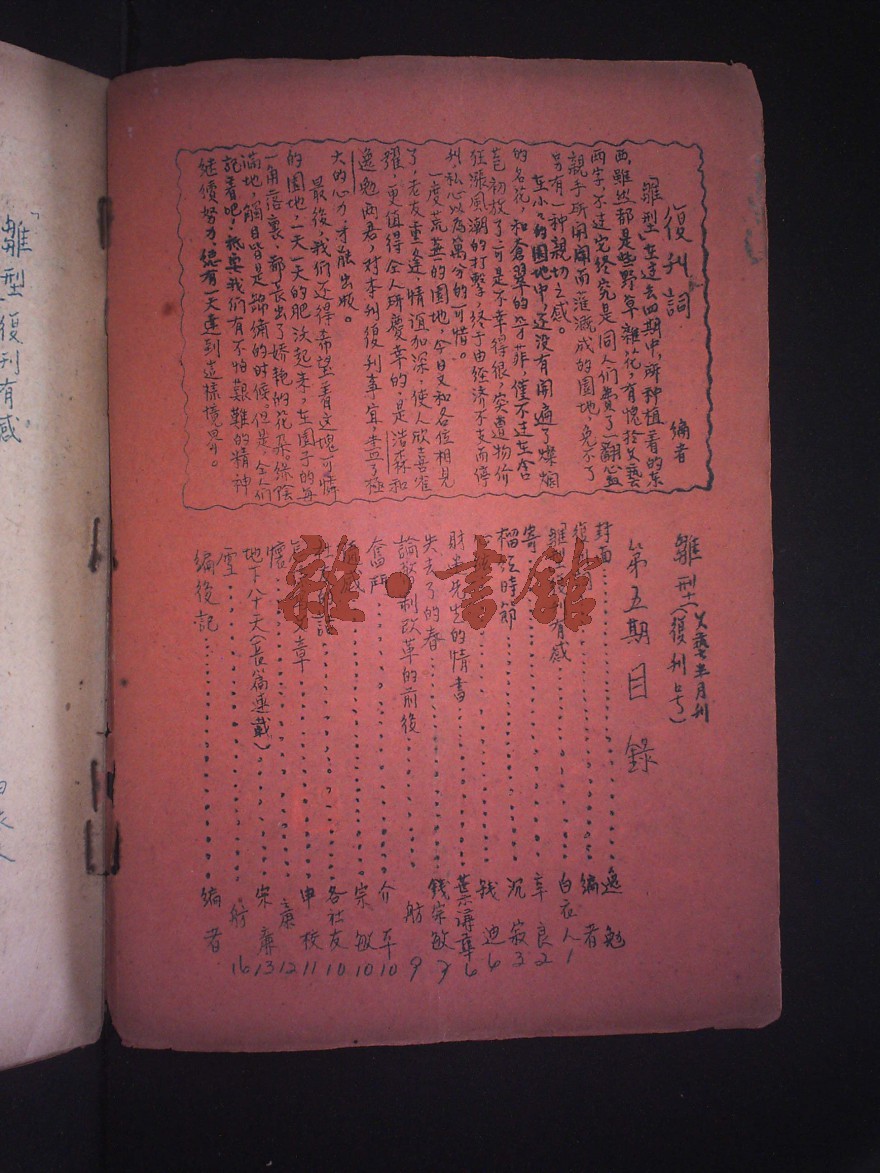 復刊詞
編者
「雛型」在过去四期中，所种植着的东
西，雖然都是些野草雜花，有愧於文藝
两字，不过它终究是同人们費了一翻心血
親手所開闢而灌溉成的園地，免不了
另有一种親切之感。
在小小的園地中，还没有開遍了燦爛
的名花，和蒼翠的芳菲，僅不过在含
苞初放了，可是不幸得很，突遭物价
狂漲風潮的打擊，终于由经济不支而停
刊，私心以為萬分的可惜。
一度荒蕪的園地，今日又和各位相見
了，老友重逢，情谊加深，使人欣喜雀
躍，更值得仝人所慶幸的，是浩森和
逸勉两君，对本刊復刊事宜，盡了極
大的心力，才能出版。
最後，我们还得希望着这塊可憐
的園地，一天一天的肥沃起来，在園子的每
一角落裏，都長出了嬌艳的花朵。绿陰
满地，觸目皆是錦繡的时候，但是，仝人们
記着吧，我要我们有不怕艱難的精神
继續努力，總有一天達到这樣境界。
文藝半月刊
雛型（復刊号）
第五期目錄
封面……逸勉
復刊詞……編者
雛型復刊有感……白衣人 1
寄……辛良 2
榴红時節……沉寂 3
钱迪 6
財生先生的情書……葉 6
失去了的春……錢宗敏 7
論敬制改革的前後……舫 9
奮鬥……介平 10
偶感……宗敏 10
各社友 10
文章……申校 11
懷……康 12
地下八十天（長篇連載）……宋 13
雪……舫 16
編後記……編者
「雛型復刊有感
雜·書館